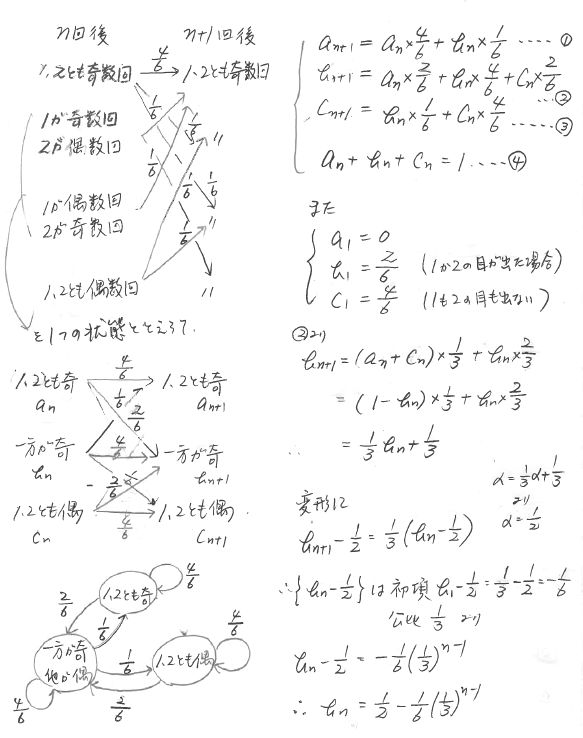 n回後 n+1回後
1,2とも奇数回 4/6 1,2とも奇数回
1/6
1が奇数回 1/6
2が偶数回 1/6 〃
1が偶数回 1/6 1/6
2が奇数回 1/6 〃
1,2とも偶数回 〃
を1つの状態ととえらて.
1,2とも奇 4/6 1,2とも奇
an 1/6 2/6 an+1
一方が奇 4/6 一方が奇
bn bn+1
2/6
1,2とも偶 4/6 1,2とも偶
cn cn+1
1,2とも奇 4/6
2/6 1/6
一方が奇 1/6 1,2とも偶 4/6
他が偶
4/6 2/6
an+1 = an×4/6 + bn×1/6 ····· ①
bn+1 = an×2/6 + bn×4/6 + cn×2/6 ····②
cn+1 = bn×1/6 + cn×4/6 ······③
an + bn + cn = 1 ·····④
また
a1 = 0
b1 = 2/6 (1か2の目が出た場合)
c1 = 4/6 (1も2の目も出ない)
②より
bn+1 = (an + cn)×1/3 + bn×2/3
= (1 - bn)×1/3 + bn×2/3
∴ = 1/3 bn + 1/3
α = 1/3 α + 1/3
より
α = 1/2
変形に
bn+1 - 1/2 = 1/3 (bn - 1/2)
∴ {bn - 1/2} は初項 b1 - 1/2 = 1/3 - 1/2 = -1/6
公比 1/3 より
bn - 1/2 = -1/6 (1/3)^n-1
∴ bn = 1/2 - 1/6 (1/3)^n-1